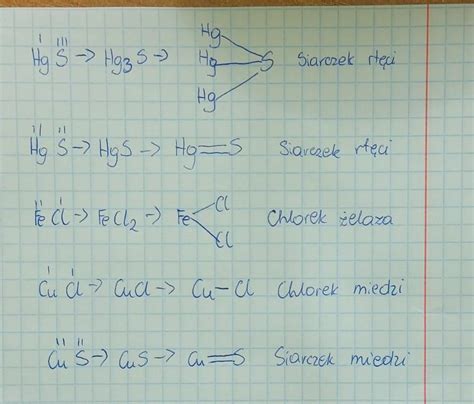 I III
HgS → Hg3S → Hg Hg Hg S Siarczek rtęci
II II
HgS → HgS → Hg=S Siarczek rtęci
II I
FeCl → FeCl2 → Fe Cl Cl Chlorek żelaza
I I
CuCl → CuCl → Cu-Cl Chlorek miedzi
II II
CuS → CuS → Cu=S Siarczek miedzi